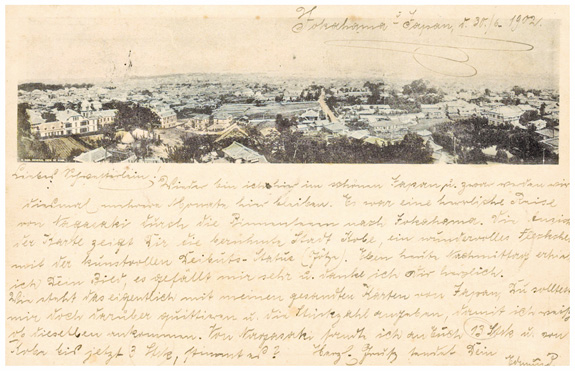 Yokohama - Japan, d. 30./6. 1902.
Liebes Schwesterlein! Wieder bin ich hier im schönen Japan u. zwar werden wir
diesmal mehrere Monate hier bleiben. Es war eine herrliche Reise
von Nagasaki durch die Binnensee nach Yokohama. Die Ansicht
der Karte zeigt Dir die berühmte Stadt Kobe, ein wundervolles Fleckchen
mit der kunstvollen Daibuts-Statue Heute Nachmittag erhielt
ich Dein Bild, es gefällt mir sehr u. danke ich Dir herzlich.
Wie steht das eigentlich mit meinen gesandten Karten von Japan, Du solltest
mir doch darüber quittieren u. die Stückzahl angeben, damit ich weiß
ob dieselben ankommen. Von Nagasaki sandte ich an Euch 13 Stck u. von
Kobe bis jetzt 3 Stck, stimmt es?? Herzl. Gruß sendet Dein